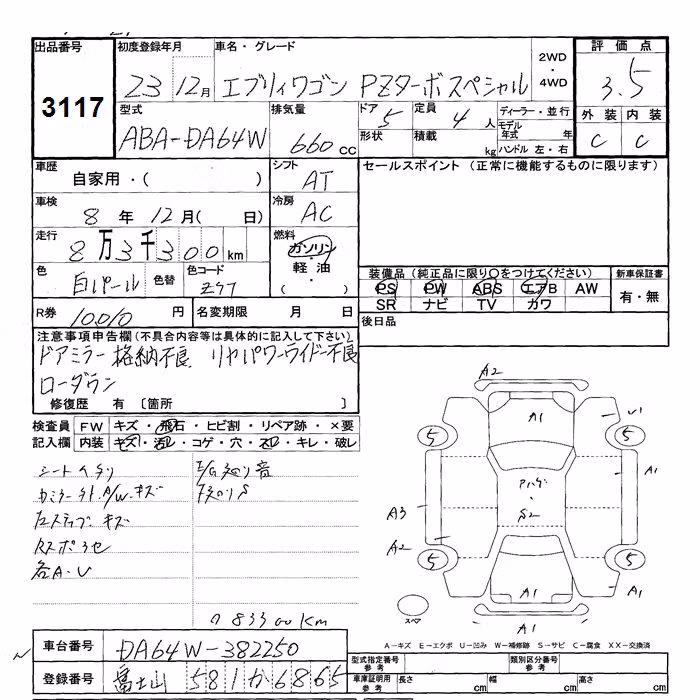 出品番号 初度登録年月 車名・グレード 2WD・4WD 評価点
3117 23 12月 エブリィワゴン PZターボスペシャル 3.5
型式 排気量 ドア 5 定員 4人 ディーラー・並行 外装 内装
ABA-DA64W 660cc 形状 積載 kg モデル年式 年 ハンドル 左・右 C C
車歴 シフト セールスポイント (正常に機能するものに限ります)
自家用・( ) AT
車検 冷房
8年 12月( 日) AC
走行 燃料
8万3千300km ガソリン・軽油・
色 色替 色コード 装備品 (純正品に限り○をつけてください) 新車保証書
白パール Z7T PS PW ABS エアB AW 有・無
SR ナビ TV カワ
R券 10,010円 名変期限 月 日 後日品
注意事項申告欄(不具合内容等は具体的に記入して下さい)
ドアミラー格納不良 リヤパワースライドー不良
ローダウン
修復歴 有 〔箇所 〕
検査員記入欄 FW キズ・飛石・ヒビ割・リペア跡・×要
内装 キズ・汚れ・コゲ・穴・スレ・キレ・破レ
シートヘタリ
キズ
キズ
各A・U
83300Km
A2
A1
U1
5 5
A1
S2
A3
A2
5 5
A1
A1
A1
スペア
A-キズ E-エクボ U-凹み W-補修跡 S-サビ C-腐食 XX-交換済
車台番号 DA64W-382250 型式指定番号 参考 類別区分番号 参考
登録番号 富士山 581か6865 車庫証明用 参考 長さ cm 幅 cm 高さ cm